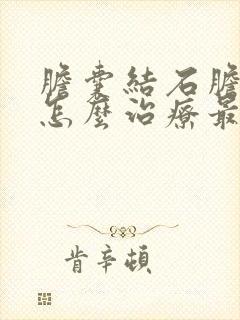 膽囊結石膽
怎麼治療最
肯辛頓